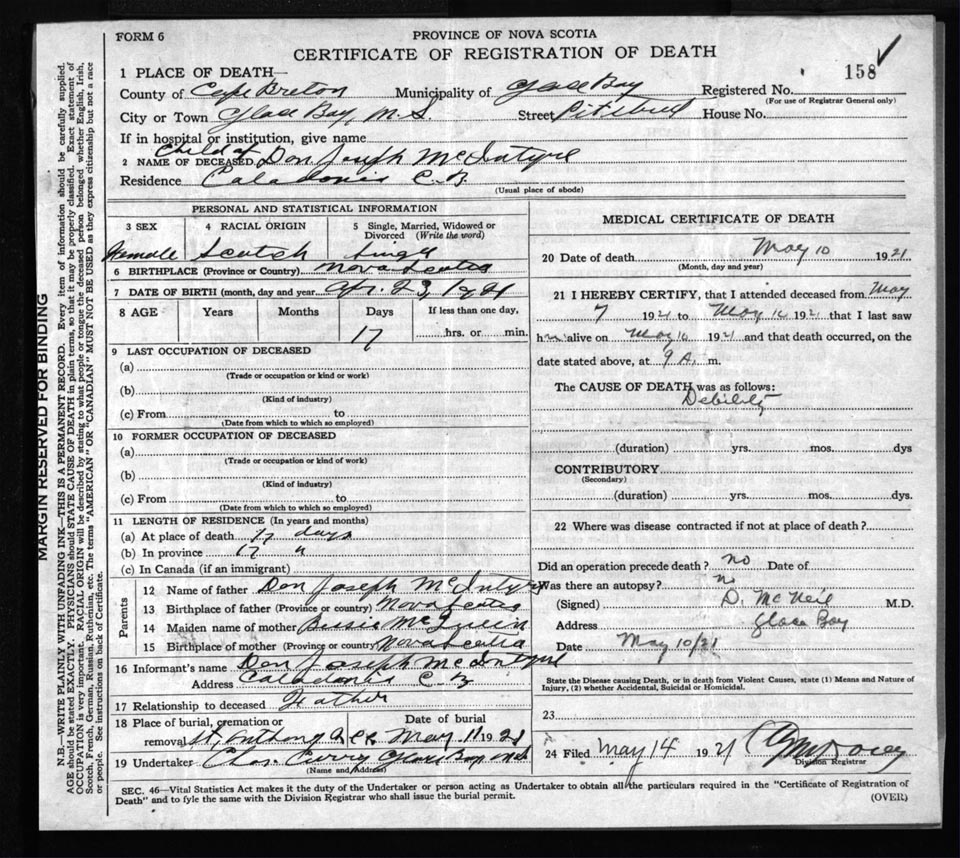 FORM 6
PROVINCE OF NOVA SCOTIA
CERTIFICATE OF REGISTRATION OF DEATH
158
1 PLACE OF DEATH—
County of Cape Breton Municipality of Glace Bay Registered No.
(For use of Registrar General only)
City or Town Glace Bay, N.S. Street House No.
If in hospital or institution, give name
Child of
2 NAME OF DECEASED Don Joseph McIntyre
Residence Caladonia C.B.
(Usual place of abode)
PERSONAL AND STATISTICAL INFORMATION
3 SEX 4 RACIAL ORIGIN 5 Single, Married, Widowed or Divorced (Write the word)
Female Scotch Single
6 BIRTHPLACE (Province or Country) Nova Scotia
7 DATE OF BIRTH (month, day and year) Apr. 23, 1921
8 AGE Years Months Days If less than one day,
17 hrs. or min.
9 LAST OCCUPATION OF DECEASED
(a)
(Trade or occupation or kind or work)
(b)
(Kind of industry)
(c) From to
(Date from which to which so employed)
10 FORMER OCCUPATION OF DECEASED
(a)
(Trade or occupation or kind of work)
(b)
(Kind of industry)
(c) From to
(Date from which to which so employed)
11 LENGTH OF RESIDENCE (In years and months)
(a) At place of death 17 days
(b) In province 17 "
(c) In Canada (if an immigrant)
Parents
12 Name of father Don Joseph McIntyre
13 Birthplace of father (Province or country) Nova Scotia
14 Maiden name of mother Bessie McQueen
15 Birthplace of mother (Province or country) Nova Scotia
16 Informant's name Don Joseph McIntyre
Address Caladonia C.B.
17 Relationship to deceased Father
18 Place of burial, cremation or removal St. Anthony Date of burial May 11 1921
19 Undertaker Chas. Curry Glace Bay N.S.
(Name and Address)
MEDICAL CERTIFICATE OF DEATH
20 Date of death May 10 1921
(Month, day and year)
21 I HEREBY CERTIFY, that I attended deceased from May
7 1921 to May 10 1921 that I last saw
h alive on May 10 1921 and that death occurred, on the
date stated above, at 9 A. m.
The CAUSE OF DEATH was as follows:
Debility
(duration) yrs. mos. dys
CONTRIBUTORY
(Secondary)
(duration) yrs. mos. dys.
22 Where was disease contracted if not at place of death?
Did an operation precede death? no Date of
Was there an autopsy? no
(Signed) D. McNeil M.D.
Address Glace Bay
Date May 10/21
State the Disease causing Death, or in death from Violent Causes, state (1) Means and Nature of
Injury, (2) whether Accidental, Suicidal or Homicidal.
23
24 Filed May 14 1921
Division Registrar
SEC. 46—Vital Statistics Act makes it the duty of the Undertaker or person acting as Undertaker to obtain all the particulars required in the "Certificate of Registration of
Death" and to fyle the same with the Division Registrar who shall issue the burial permit.
(OVER)
MARGIN RESERVED FOR BINDING
N.B.—WRITE PLAINLY WITH UNFADING INK—THIS IS A PERMANENT RECORD. Every item of information should be carefully supplied.
AGE should be stated EXACTLY. PHYSICIANS should STATE CAUSE OF DEATH in plain terms, so that it may be properly classified. Exact statement of
OCCUPATION is very important. RACIAL ORIGIN will be described by stating to what people or tongue the deceased person belonged whether English, Irish,
Scotch, French, German, Russian, Ruthenian, etc. The terms "AMERICAN" OR "CANADIAN" MUST NOT BE USED as they express citizenship but not a race
or people. See instructions on back of Certificate.